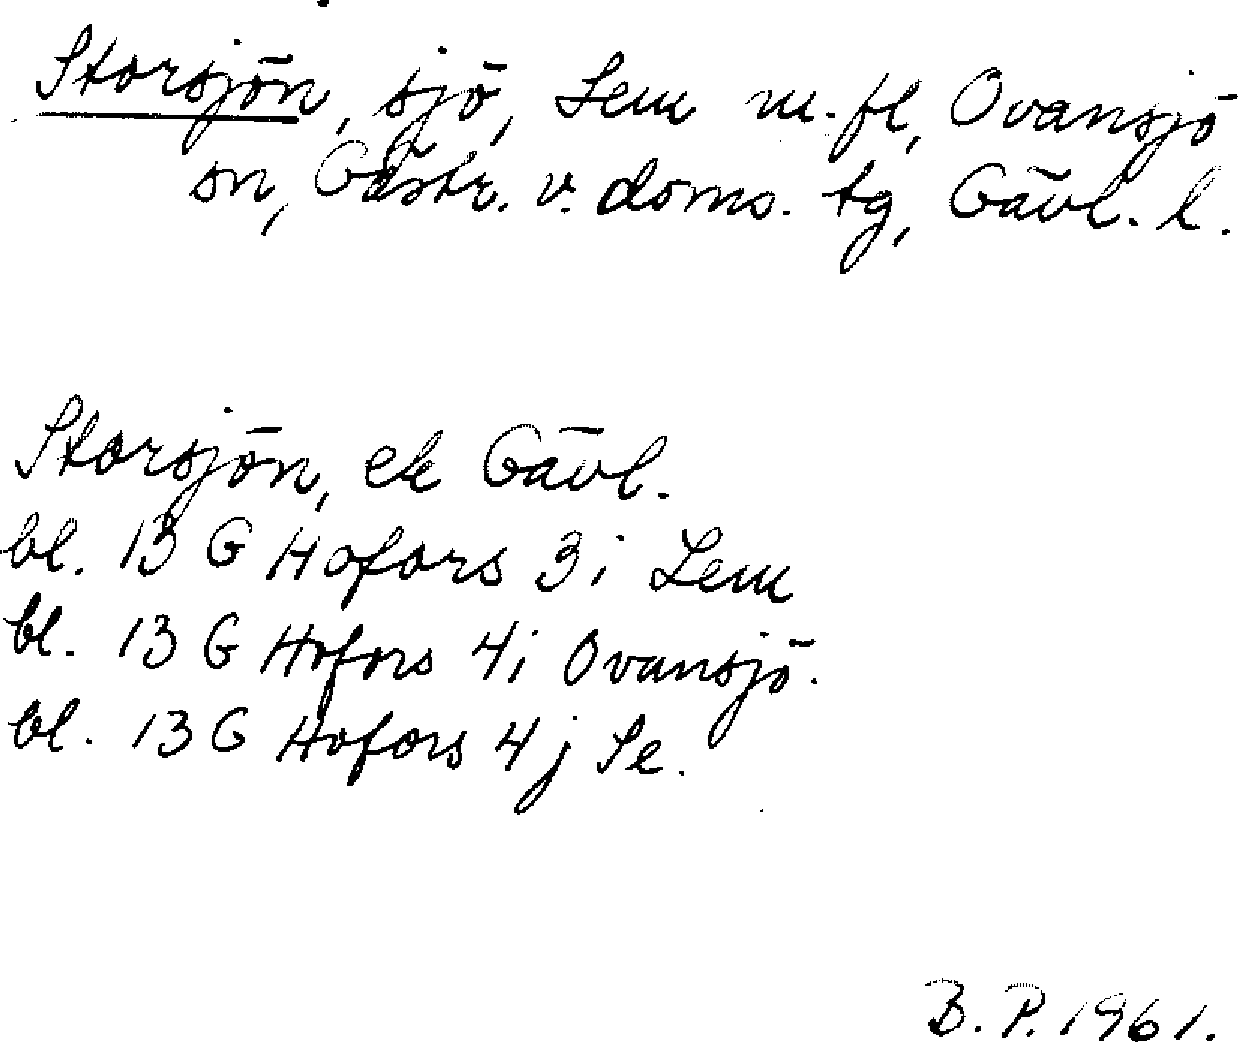 Storsjön, sjö, Lem m.fl, Ovansjö
sn, Gästr. v. doms. tg, Gävl. l.
Storsjön, ek Gävl.
bl. 13 G Hofors 3i Lem
bl. 13 G Hofors 4i Ovansjö.
bl. 13 G Hofors 4j Se.
B. P. 1961.